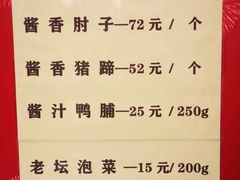 酱香肘子—72元/个
酱香猪蹄—52元/个
酱汁鸭脯—25元/250g
老坛泡菜—15元/200g